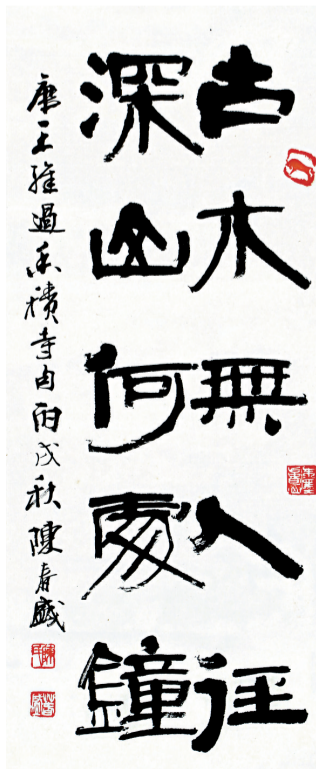 古木無人徑
深山何處鐘
唐王維過香積寺句丙戌秋陳春盛